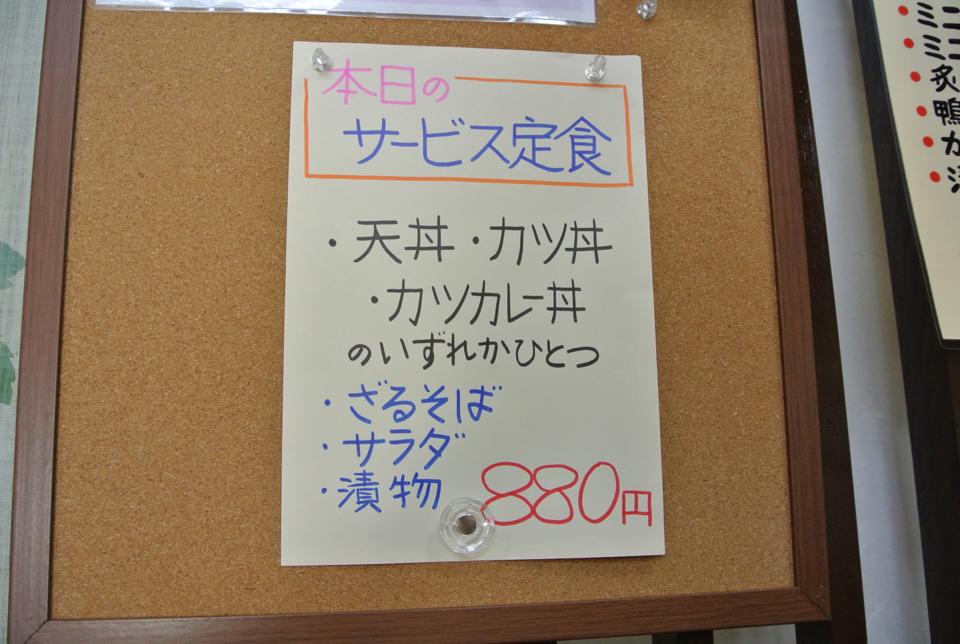 本日の
サービス定食
・天丼・カツ丼
・カツカレー丼
のいずれかひとつ
・ざるそば
・サラダ
・漬物
880円
・ミニ
・ミニ
・炙
・鴨
・か